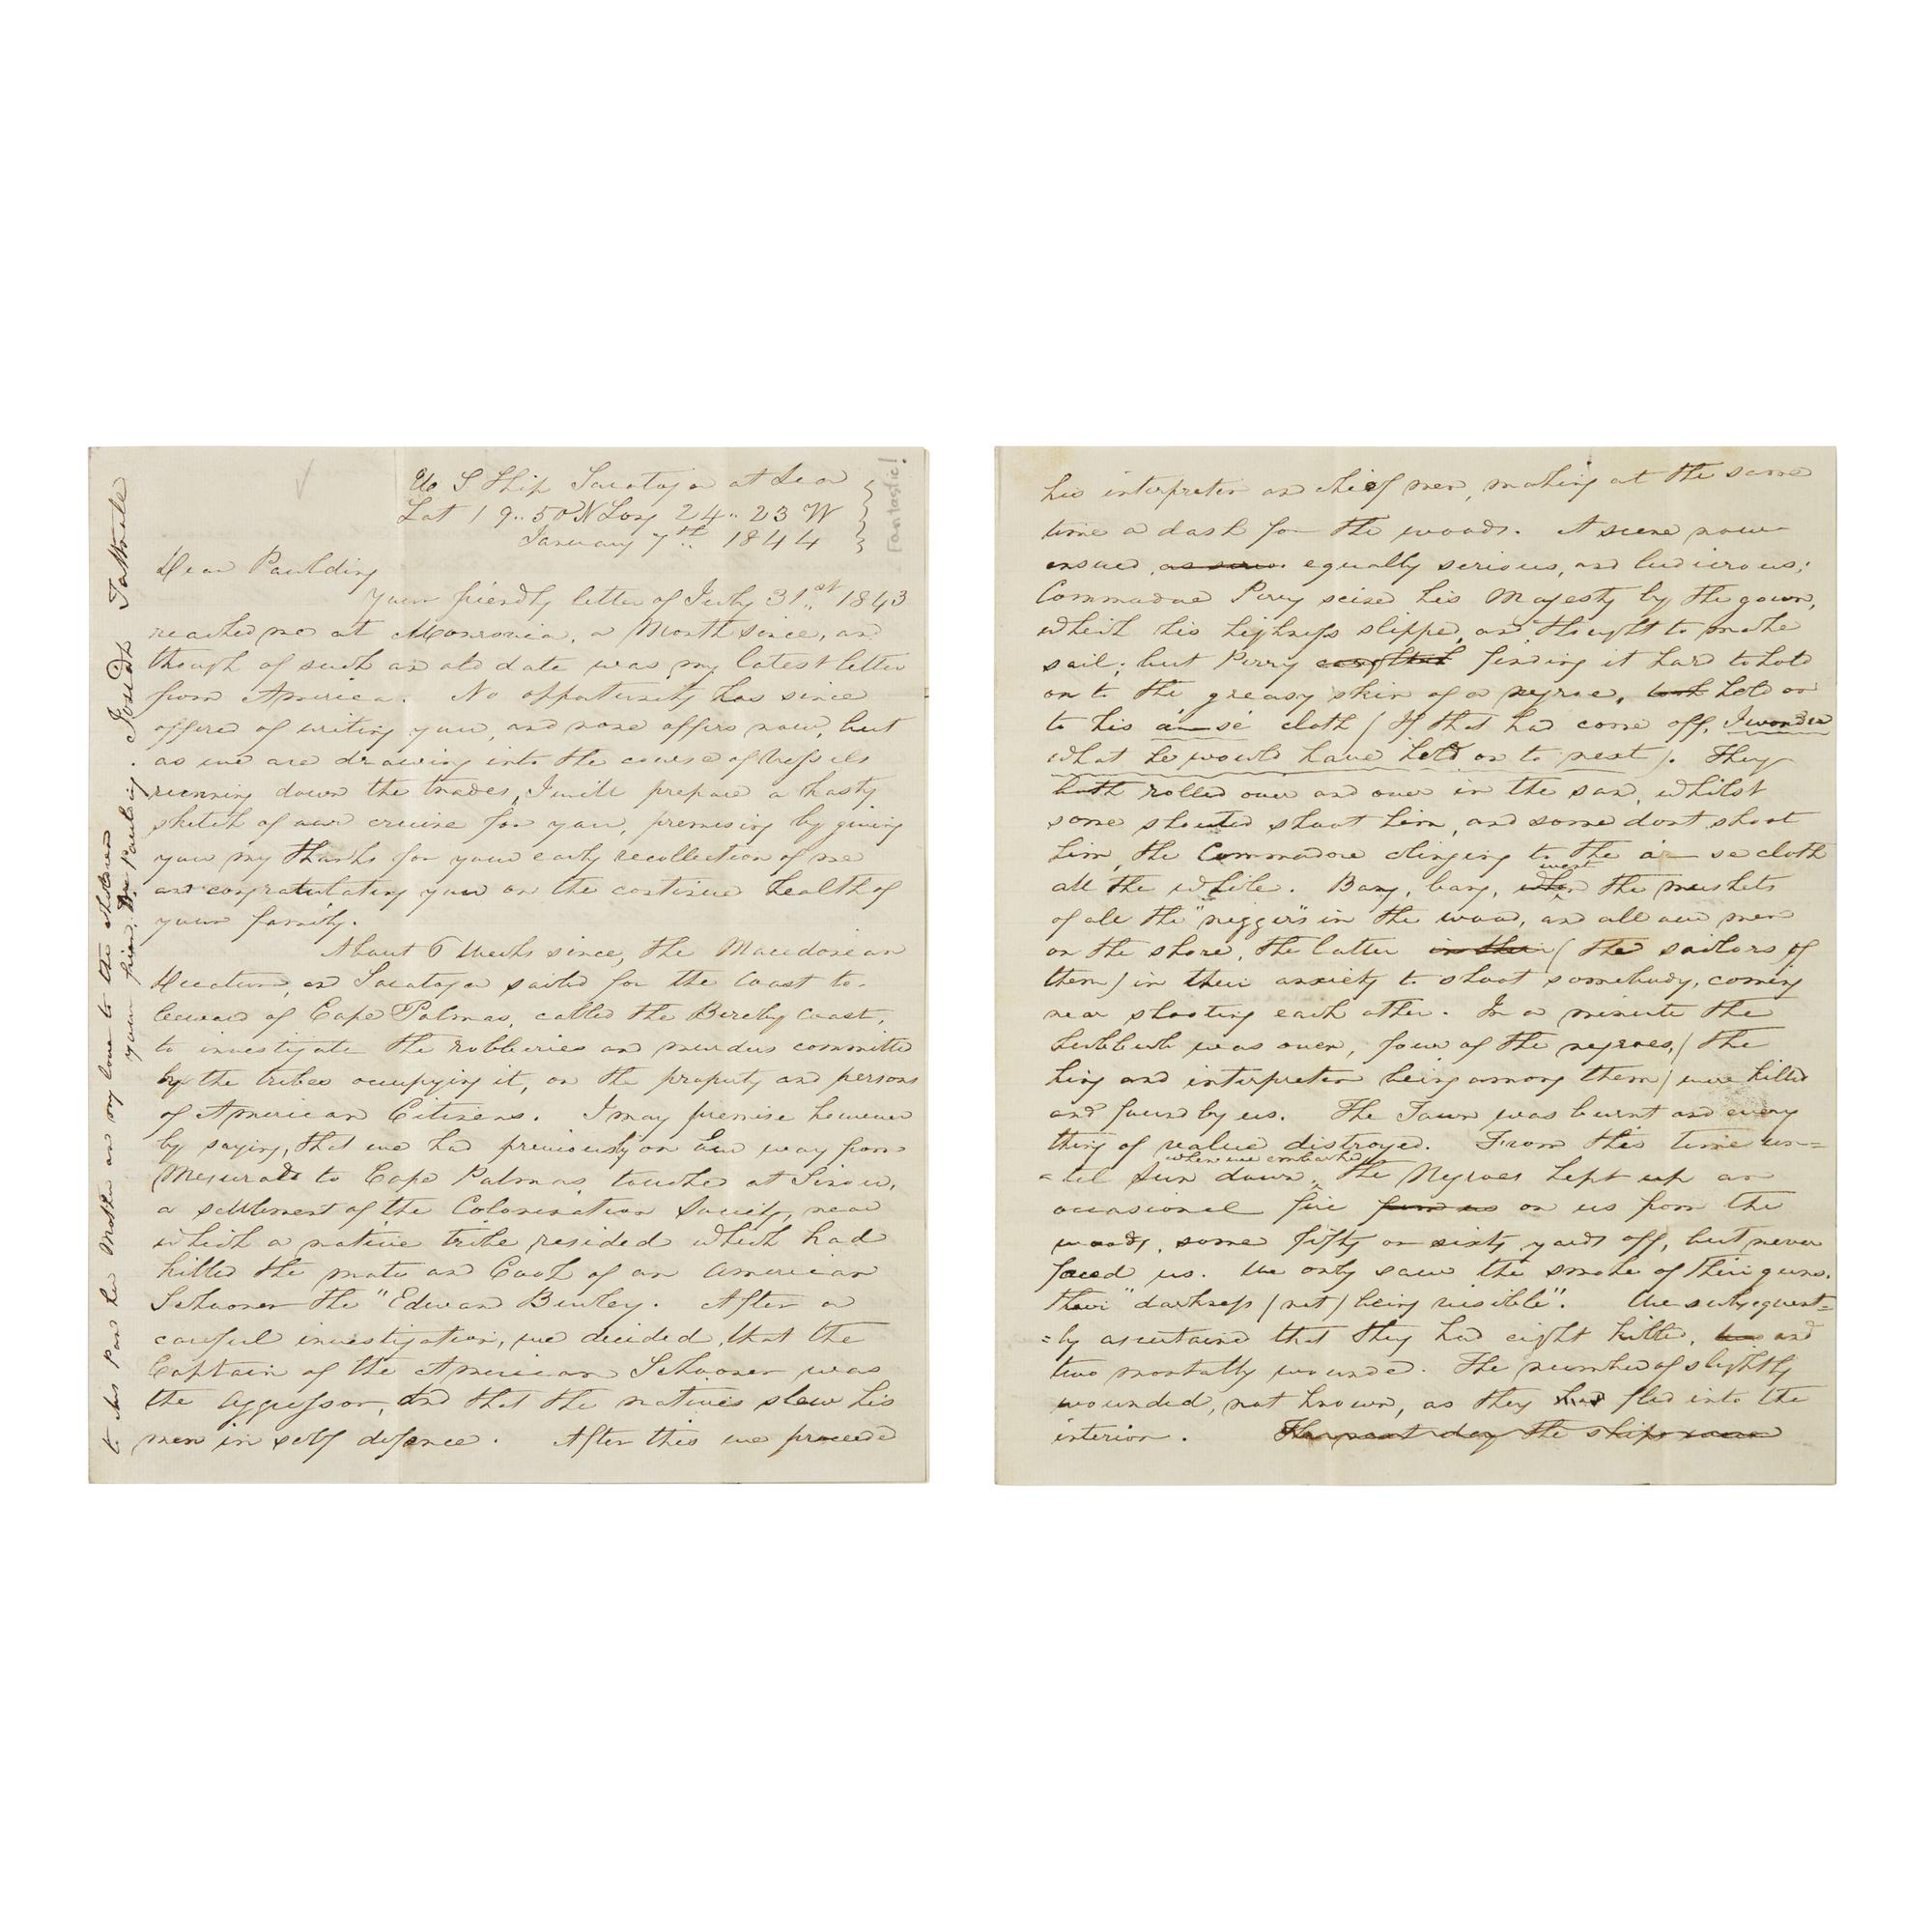 U S Ship Saratoga at Sea
Lat 19..50 N Long 24..23 W
January 7th 1844
fantastic!
Dear Paulding
Your friendly letter of July 31st 1843
reached me at Monrovia, a Month since, and
though of such an old date was my latest letter
from America. No oppotunity has since
offered of writing you, and none offers now, but
as we are drawing into the course of Vessels
running down the trades, I will prepare a hasty
sketch of our cruise for you, premising by giving
you my thanks for your early recollection of me
and congratulating you on the continue health of
your family.
About 6 Weeks since, the Macedonian
Decatur, and Saratoga sailed for the Coast to
leeward of Cape Palmas, called the Bereby Coast,
to investigate the robberies and murders committed
by the tribes occupying it, on the property and persons
of American Citizens. I may premise however
by saying, that we had previously on our way from
Mesurado to Cape Palmas touched at Sinou,
a settlement of the Colonisation Society, near
which a native tribe resided which had
killed the mate and Cook of an American
Schooner the "Edward Burley. After a
careful investigation, we decided, that the
Captain of the American Schooner was
the aggressor, and that the natives slew his
men in self defence. After this we proceed
to Mrs Pau her Mother and my love to the children
your friend. Paulding. Josiah Tattnall
his interpreter and chief men, making at the same
time a dash for the woods. A scene now
ensued, equally serious, and ludicrous;
Commodore Perry seized his Majesty by the gown,
which his highness slipped, and thought to make
sail; but Perry caught finding it hard to hold
on to the greasy skin of a negroe, took hold on
to his a—se cloth (If that had come off, I wonder
what he would have held on to next). They
both rolled over and over in the sand, whilst
some shouted shoot him, and some dont shoot
him, the Commodore clinging to the a— se cloth
all the while. Bang, bang, went the muskets
of all the "niggers" in the wood, and all our men
on the shore, the latter in their (the sailors of
them) in their anxiety to shoot somebody, coming
near shooting each other. In a minute the
hubbub was over, four of the negroes, (the
king and interpreter being among them) were killed
and found by us. The Town was burnt and every
thing of value distroyed. From this time un=
=til Sun down, when we embarked, the Negroes kept up an
occasional fire from us on us from the
woods, some fifty or sixty yards off, but never
faced us. We only saw the smoke of their guns.
their "darkness (not) being visible". We subsequent=
=ly ascertained that they had eight killed, and
two mortally wounded. The number of slightly
wounded, not known, as they had fled into the
interior. The next day the ships